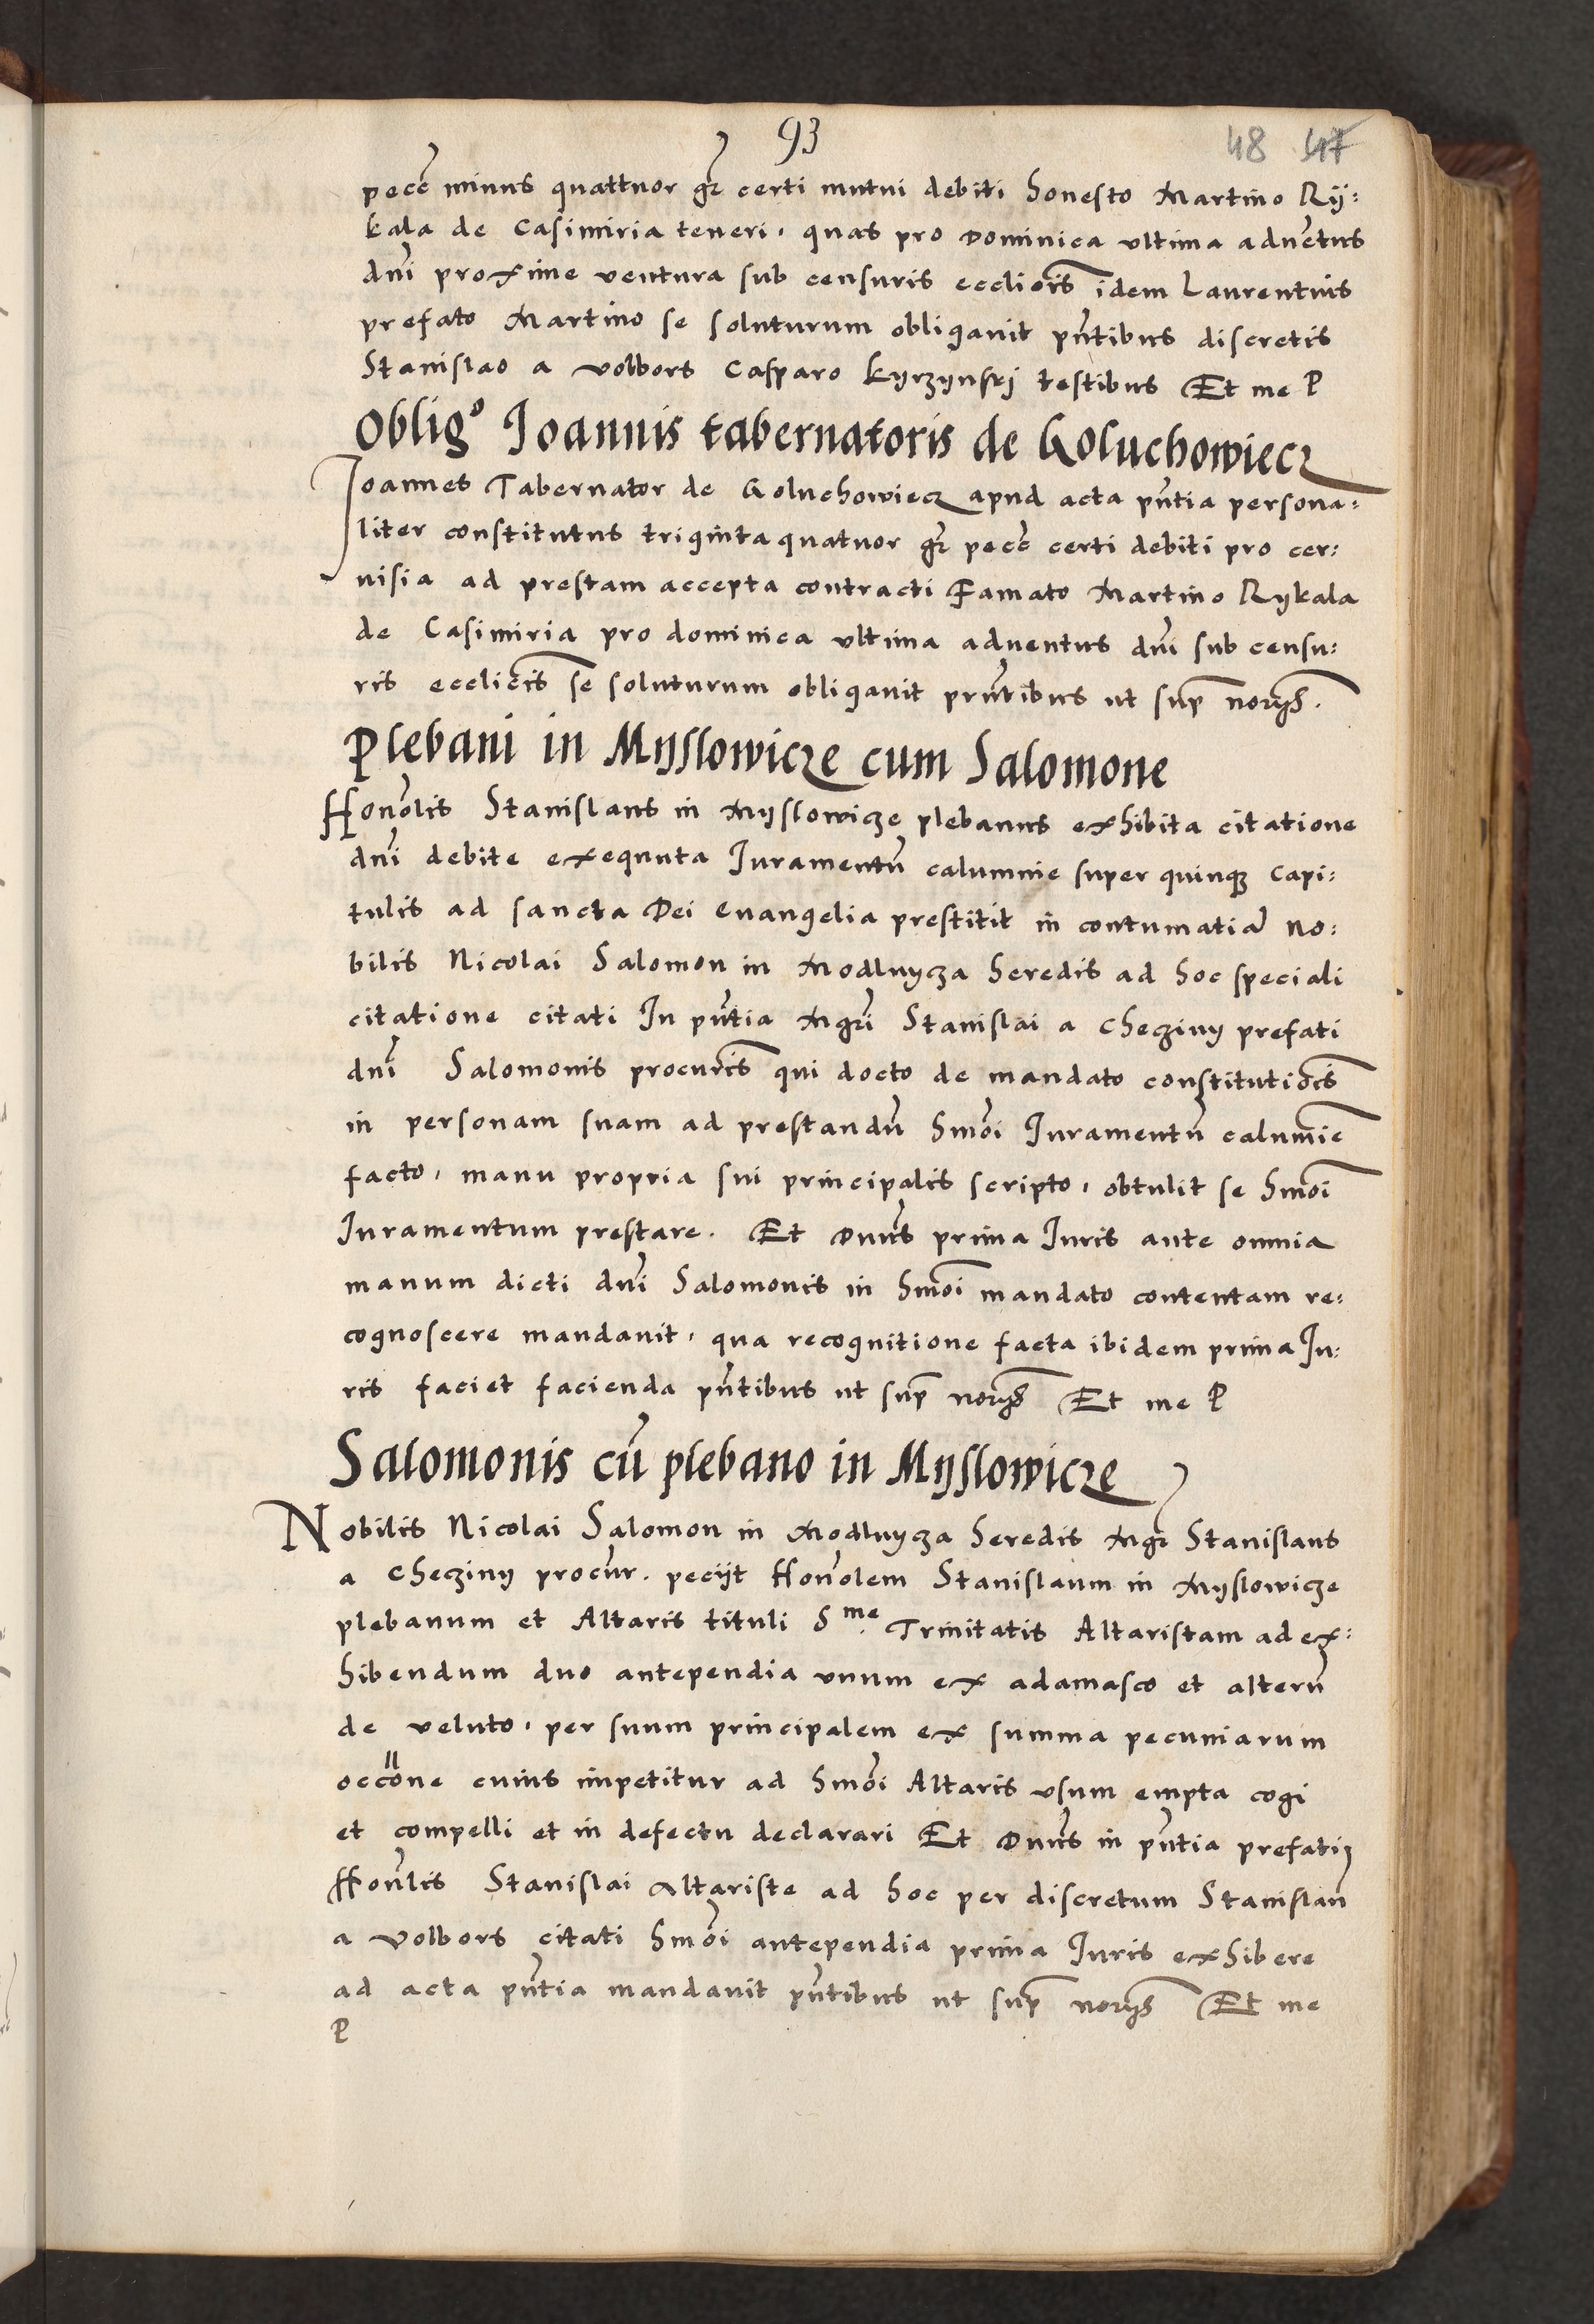 93
48 47
pecĉ minus quattuor gr̃ certi mutui debiti honesto Martino Rij:
kala de Casimiria teneri, quas pro Dominica ultima advẽtus
dnĩ proxime ventura sub censuris ecclicĩs idem Laurentius
prefato Martino se soluturum obligavit pñtibus discretis
Stanislao a volbors Casparo Kyrzynskj testibus Et me P
Oblig° Joannis tabernatoris de Goluchowiecz
Joannes Tabernator de Goluchowiecz apud acta pñtia persona:
liter constitutus triginta quatuor gr̃ pecĉ certi debiti pro cer:
visia ad prestam accepta contracti Famato Martino Rykala
de Casimiria pro dominica ultima adventus dnĩ sub censu:
ris ecclicĩs se soluturum obligavit prñtibus ut sup̃ norijs̃.
Plebani in Myslowicze cum Salomone
Honõlis Stanislaus in Myslowicze plebanus exhibita citatione
dnĩ debite exequuta Juramentũ calumnie super quinqȝ Capi:
tulis ad sancta Dei evangelia prestitit in contumatiã no:
bilis Nicolai Salomon in Modlnycza heredis ad hoc speciali
citatione citati In pñtia Mgr̃i Stanislai a Checziny prefati
dnĩ Salomonis procurĩs qui docto de mandato constitutiõis
in personam suam ad prestandũ hmõi Juramentũ calumĩe
facto, manu propria sui principalis scripto, obtulit se hmõi
Juramentum prestare. Et Dnũs prima Juris ante omnia
manum dicti dnĩ Salomonis in hmõi mandato contentam re:
cognoscere mandavit, qua recognitione facta ibidem prima Ju:
ris faciet facienda pñtibus ut sup̃ norijs̃ Et me P
Salomonis cũ plebano in Myslowicze
Nobilis Nicolai Salomon in Modlnycza heredis Mgr̃ Stanislaus
a Checziny procur̃. peciit Honõlem Stanislaum in Myslowicze
plebanum et Altaris tituli S.me Trinitatis Altaristam ad ex:
hibendum duo antependia unum ex adamasco et alterũ
de veluto, per suum principalem ex summa pecuniarum
occõne cuius impetitur ad hmõi Altaris usum empta cogi
et compelli et in defectu declarari Et Dnũs in pñtia prefati
Honõlis Stanislai Altariste ad hoc per discretum Stanislaũ
a Volbors citati hmõi antependia prima Juris exhibere
ad acta pñtia mandavit pñtibus ut sup̃ norijs̃ Et me
P